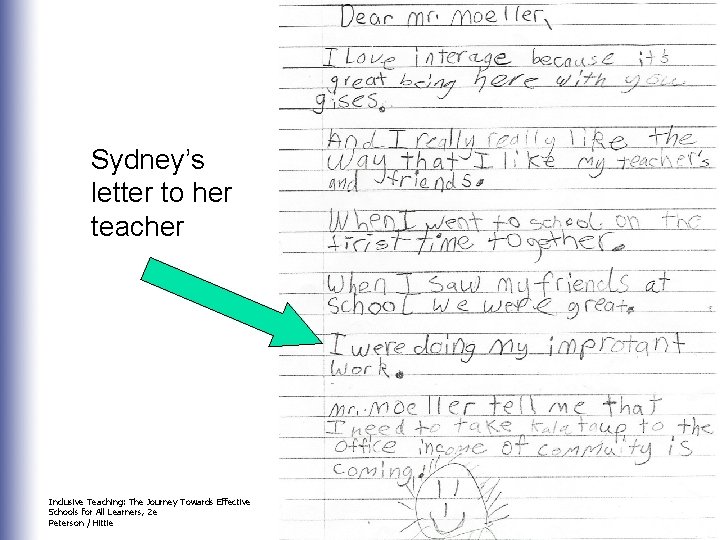 Sydney's
letter to her
teacher
Inclusive Teaching: The Journey Towards Effective
Schools for All Learners, 2e
Peterson / Hittie
Dear mr. moeller,
I Love interage because it's
great being here with you
gises.
And I really really like the
way that I like my teacher's
and friends.
When I went to school on the
firist time together.
When I saw my friends at
school we were great.
I were doing my improtant
work.
Mr. moeller tell me that
I need to take up to the
office income of commuity is
coming!!